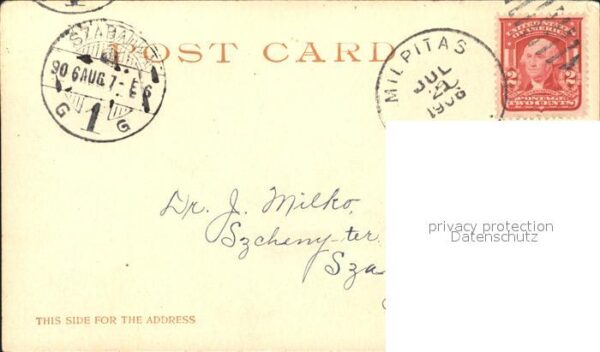 SZABAD
906 AUG. 7 - E6
G 1 G
POST CARD
MILPITAS
JUL
21
1906
UNITED STATES OF AMERICA
2 2
POSTAGE
TWO CENTS
Dr. J. Milko,
Szcheny-ter
Sza
privacy protection
Datenschutz
THIS SIDE FOR THE ADDRESS